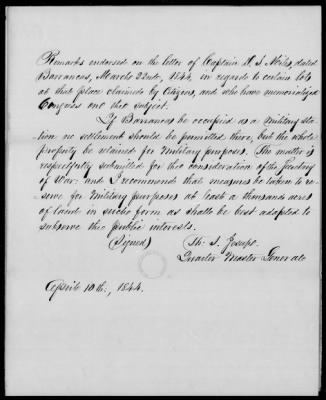 Remarks endorsed on the letter of Captain D. S. Miles, dated
Barrancas, March 22nd, 1844, in regards to certain lots
at that place claimed by Citizens, and who have memorialized
Congress on the subject.
If Barrancas be occupied as a military sta
tion no settlement should be permitted there, but the whole
property be retained for Military purposes. The matter is
respectfully submitted for the consideration of the Secretary
of War: and I recommend that measures be taken to re-
serve for Military purposes at least a thousand acres
of land in such form as shall be best adapted to
subserve the public interests.
(Signed) Th: S. Jesup.
Quarter Master General
April 10th, 1844.